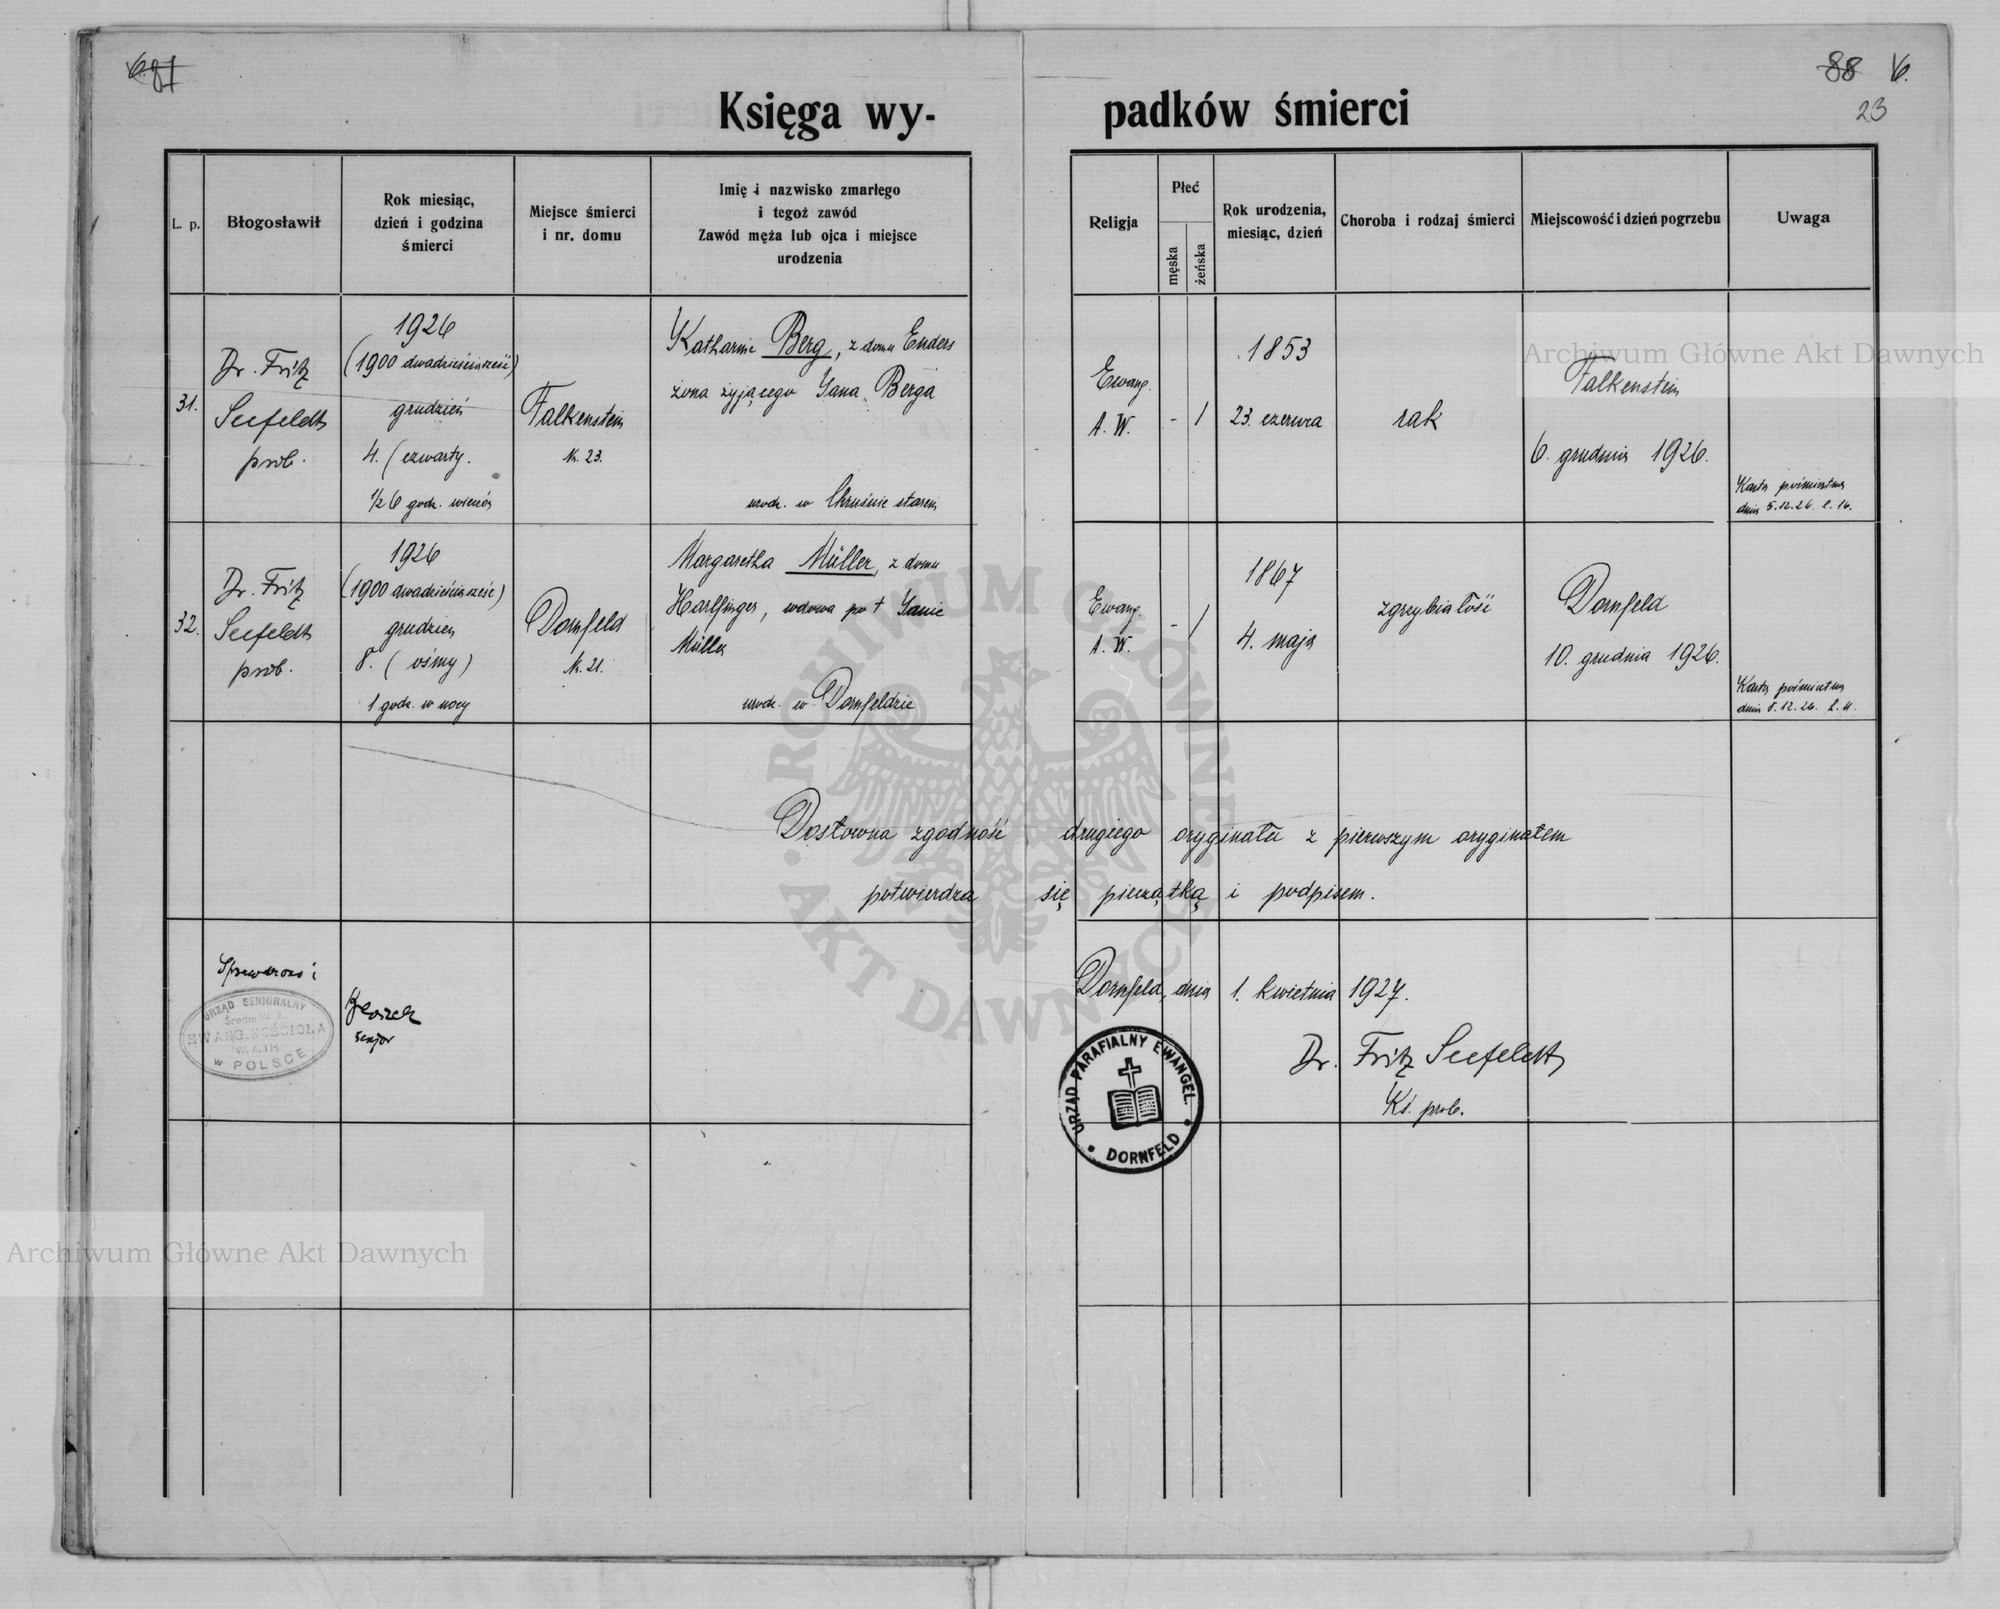 687
88 6.
23
Księga wy-
padków śmierci
L. p.
Błogosławił
Rok miesiąc,
dzień i godzina
śmierci
Miejsce śmierci
i nr. domu
Imię i nazwisko zmarłego
i tegoż zawód
Zawód męża lub ojca i miejsce
urodzenia
Religja
Płeć
męska
żeńska
Rok urodzenia,
miesiąc, dzień
Choroba i rodzaj śmierci
Miejscowość i dzień pogrzebu
Uwaga
31.
Dr. Fritz
Seefeldt
prob.
1926
(1900 dwadzieścia sześć)
grudzień
4. (czwarty.
1/2 6 godz. wieczór
Falkenstein
Nr. 23.
Katharine Berg, z domu Enders
żona żyjącego Jana Berga
urodz. w Chruśnie starem
Ewang.
A. W.
- 1
1853
23. czerwca
rak
Falkenstein
6. grudnia 1926.
Karta pośmiertna
dnia 5.12.26. l. 16.
32.
Dr. Fritz
Seefeldt
prob.
1926
(1900 dwadzieścia sześć)
grudzień
8. (ósmy)
1 godz. w nocy
Dornfeld
Nr. 21.
Margaretha Müller, z domu
Harlfinger, wdowa po † Janie
Müller
urodz. w Dornfeldzie
Ewang.
A. W.
- 1
1867
4. maja
zgrzybiałość
Dornfeld
10. grudnia 1926.
Karta pośmiertna
dnia 8.12.26. L.
Dosłowna zgodność drugiego oryginału z pierwszym oryginałem
potwierdza się pieczątką i podpisem.
Sprawdzono i
URZĄD SENIORALNY
EWANG. KOŚCIOŁA
W POLSCE
senjor
Dornfeld, dnia 1. kwietnia 1927.
URZĄD PARAFIALNY EWANGEL.
DORNFELD
Dr. Fritz Seefeldt
Ks. prob.
Archiwum Główne Akt Dawnych
Archiwum Główne Akt Dawnych
ARCHIWUM GŁÓWNE AKT DAWNYCH